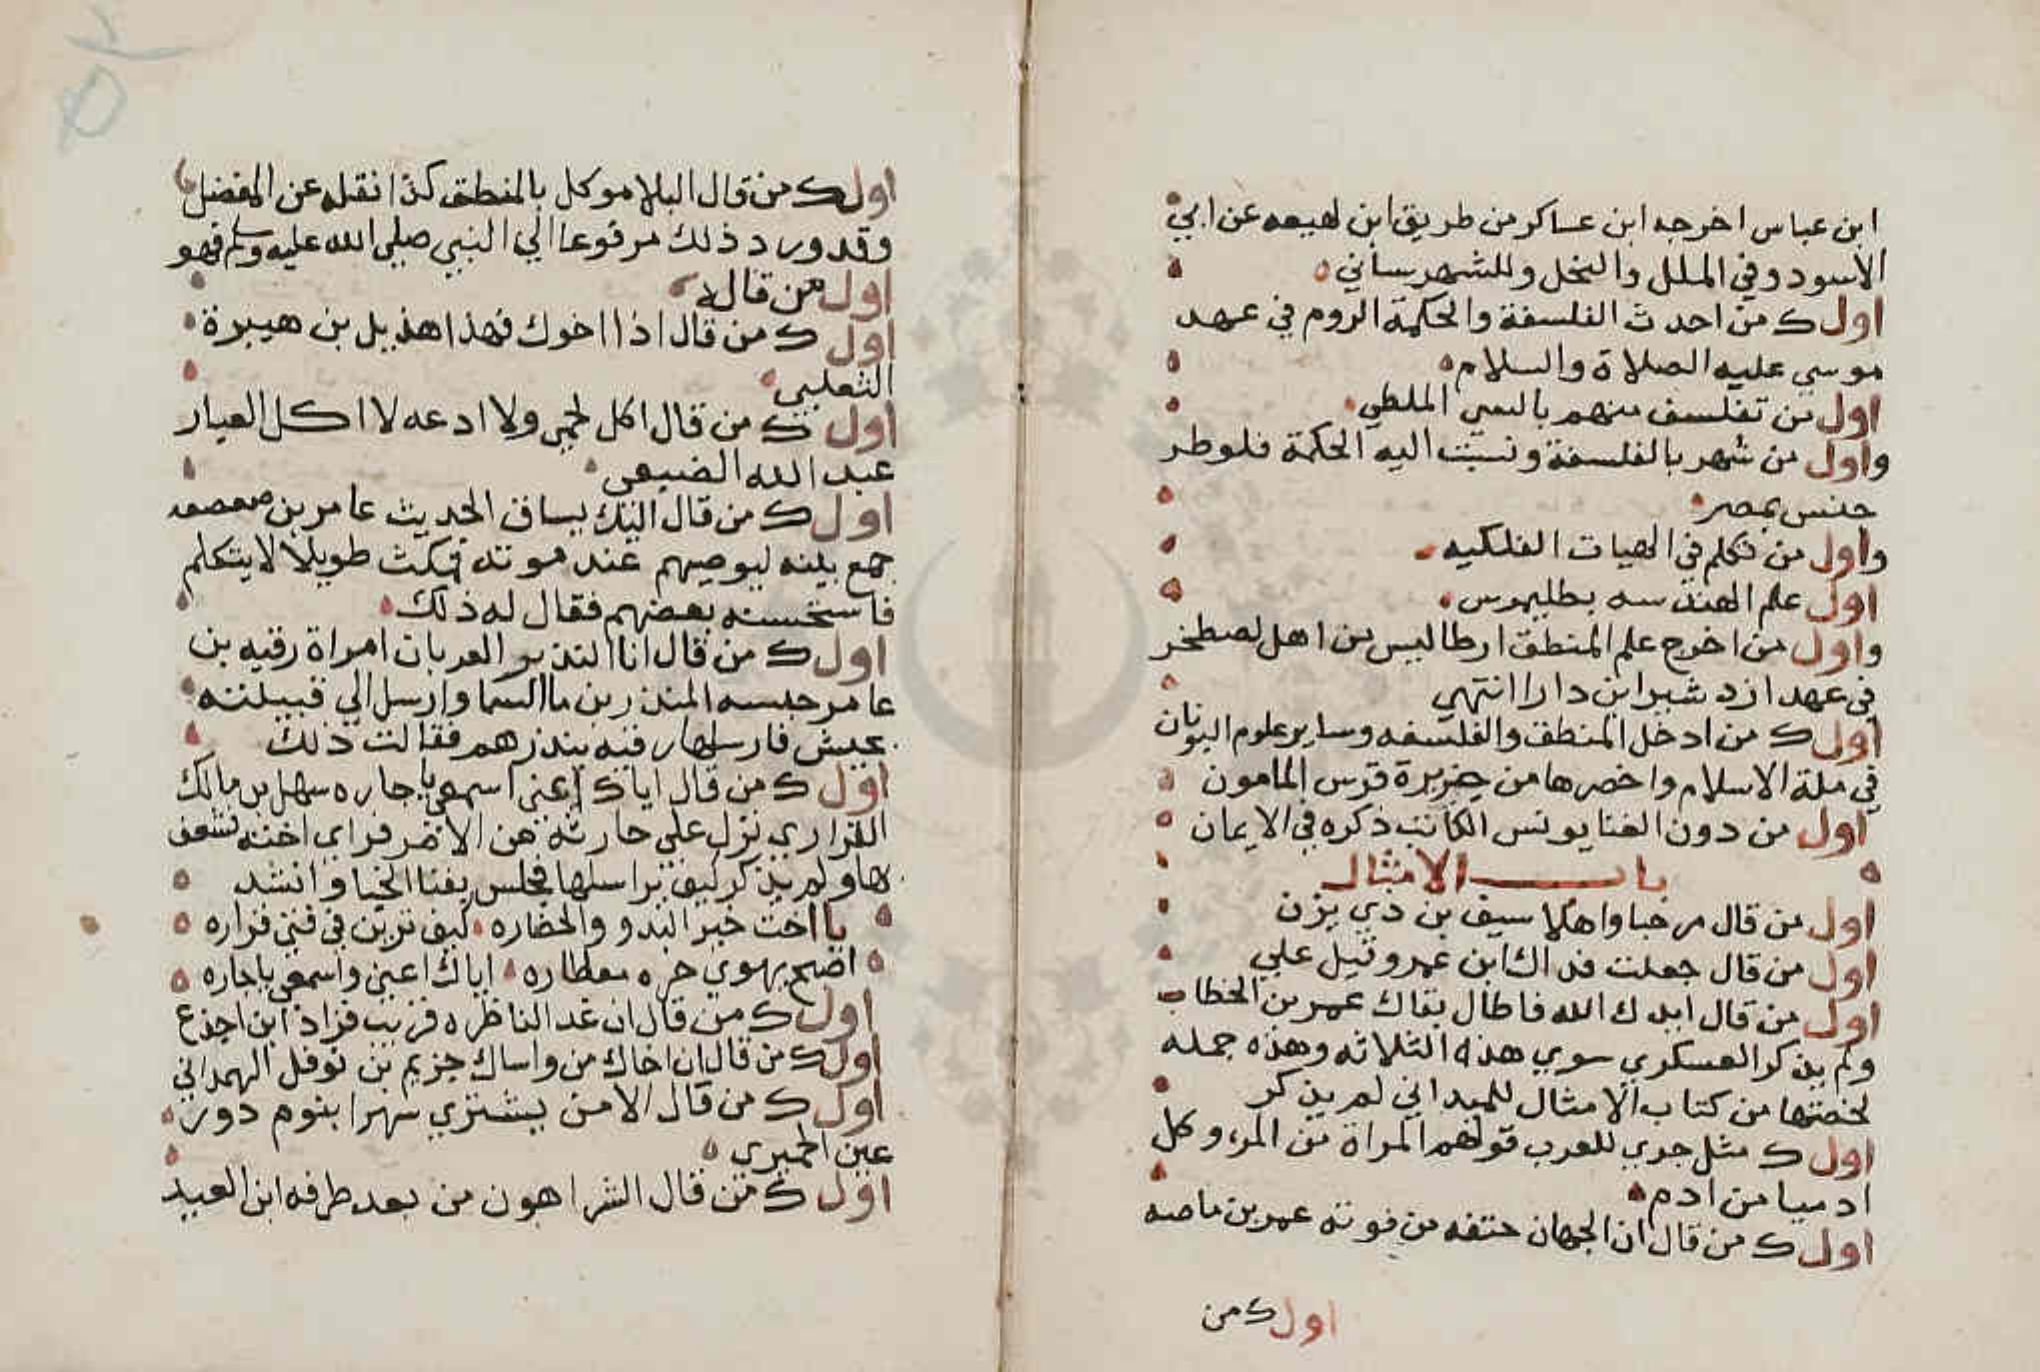 ابن عباس اخرجه ابن عساكر من طريق ابن لهيعه عن ابي
الاسود وفي الملل والنخل وللشهرساني
اول ك من احدث الفلسفة والحكمة الروم في عهد
موسي عليه الصلاة والسلام
اول من تفلسف منهم الملطي
واول من شهر بالفلسفة ونسبت اليه الحكمة فلوطر
حنس بمصر
واول من تكلم في الهيات الفلكيه
اول علم الهندسه بطليموس
واول من اخرج علم المنطق ارطاليس من اهل اصطخر
في عهد ازدشير ابن دارا انتهي
اول ك من ادخل المنطق والفلسفه وساير علوم اليونان
في ملة الاسلام واحضرها من جزيرة قرس المامون
اول من دون الغنا يونس الكاتب ذكره في الايمان
باب الامثال
اول من قال مرحبا واهلا سيف بن ذي يزن
اول من قال جعلت فداك ابن عمرو قيل علي
اول من قال ايدك الله فاطال بقاك عمر بن الخطاب
ولم يذكر العسكري سوي هذه الثلاثه وهذه جمله
لخصتها من كتاب الامثال للميداني لم يذكر
اول ك مثل جري للعرب قولهم المراة من المرء وكل
ادميا من ادم
اول ك من قال ان الجهان حتفه من فوته عمر بن مامه
اول ك من
اول ك من قال البلا موكل بالمنطق كذا نقله عن المفضل
وقد ورد ذلك مرفوعا الي النبي صلي الله عليه وسلم فهو
اول من قاله
اول ك من قال اذا اخوك فهذا هذيل بن هبيرة
الثعلبي
اول ك من قال اكل لحمي ولا ادعه لا اكل العيار
عبد الله الضبعي
اول ك من قال اليك يساق الحديث عامر بن صعصعه
جمع بينه ليوصيهم عند موته فمكث طويلا لا يتكلم
فاستحسنه بعضهم فقال له ذلك
اول ك من قال انا النذير العريان امراة رقيه بن
عامر حبسه المنذر بن ما السما وارسل الي قبيلته
بجيش فارسلها رقيه ينذرهم فقالت ذلك
اول ك من قال اياك اعني اسمعي يا جاره سهل بن مالك
الفزاري نزل علي حارثه من الامر فراي اخته فشغف
بها ولم يذكر كيف يراسلها فجلس بفنا الخبا وانشد
يا اخت خير البدو والحضاره كيف ترين في فتي فزاره
اصبح يهوي حره معطاره اياك اعني واسمعي يا جاره
اول ك من قال ان غد الناظره قريب قراد ابن اجدع
اول ك من قال ان اخاك من واساك جزيم بن نوفل الهمداني
اول ك من قال الا من يشتري سهرا بنوم دور
عين الحميري
اول ك من قال الشر اهون من بعد طرفه ابن العبيد